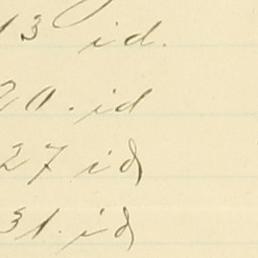 13 id.
20. id
27 id
31. id